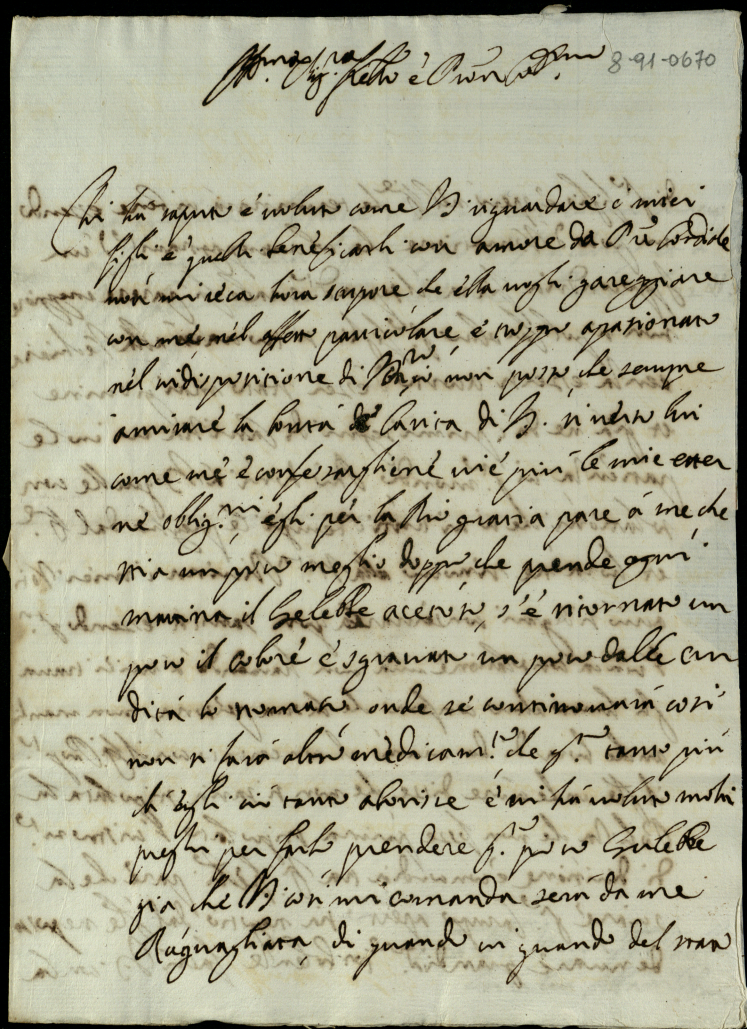 Ill.mo Sig.r fr̃ello è P̃ron Co
8-91-0670
Chi hà saputo è voluto come V.S. riguardare i miei
figli è quelli beneficarli con amore da P̃re Cordiale
non mi reca hora stupore che ella vogli gareggiare
con me nel affetto particolare è troppo apasionato
nel indispositione di non posso che sempre
amirare la bontà è Carita di V.S. si verso lui
come me è confesargliene vie più le mie eter
ne oblig.ni, egli per la Dio gratia pare à me che
stia un poco meglio doppo che prende ogni
mattina il Gelebbe acetoso, s'è ritornato un
poco il colore è sgravato un poco dalle cru
dità lo stomaco onde se continovarà così
non si farà altro medicam.to che q.to tanto più
ch'egli in tanto aborisce è vi hà voluto molti
preghi per farlo prendere q.to poco Gulebbe
gia che V.S. così mi comanda serà da me
Raguagliata di quando in quando del stato